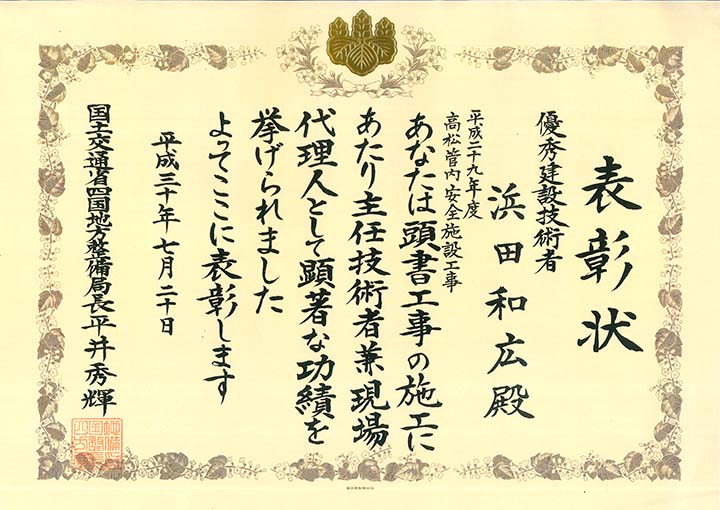 表彰状
優秀建設技術者
浜田和広殿
平成二十九年度
高松管内安全施設工事
あなたは頭書工事の施工に
あたり主任技術者兼現場
代理人として顕著な功績を
挙げられました
よってここに表彰します
平成三十年七月二十日
国土交通省四国地方整備局長平井秀輝